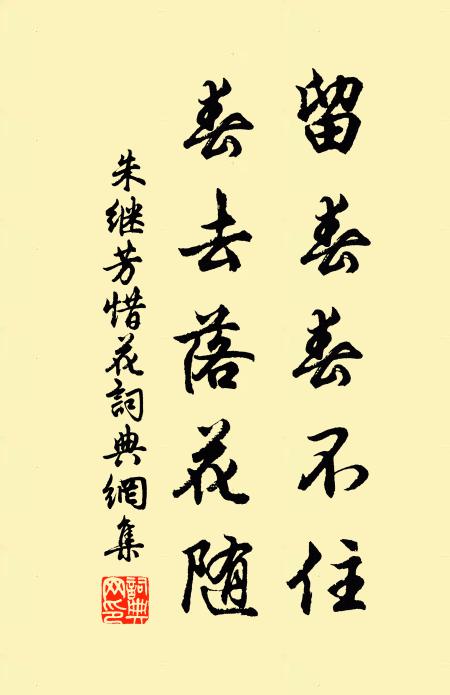 留春春不住
春去落花随
朱继芳惜花詞典網集
詞典網印